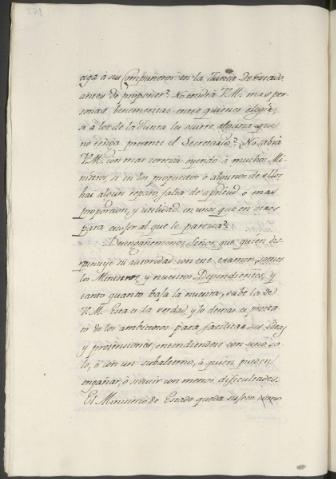 ciga á sus Compañeros en la Junta de Estado
antes de proponer? No tendrá V.M. mas per
sonas benemeritas entre quienes elegir,
si á los de la Junta les ocurre alguna que
no tenga presente el Secretario? No sabrá
V.M. con mas certeza oyendo á muchos Mi-
nistros, si en los propuestos ó algunos de ellos
hai algun reparo, falta de aptitud ó mas
proporcion, y utilidad en unos que en otros
para escoger al que le parezca?
Desengañemonos Señor, que quien dis-
minuye su autoridad con este examen, somos
los Ministros, y nuestros Dependientes, y
tanto quanto baja la nuestra, sube la de
V.M. Esta es la verdad, y lo demas es pretex-
to de los ambiciosos para facilitar sus ideas,
y pretensiones entendiendose con uno so-
lo, ó con un subalterno, á quien pueden
engañar, ó seguir con menos dificultades.
El Ministerio de Estado queda